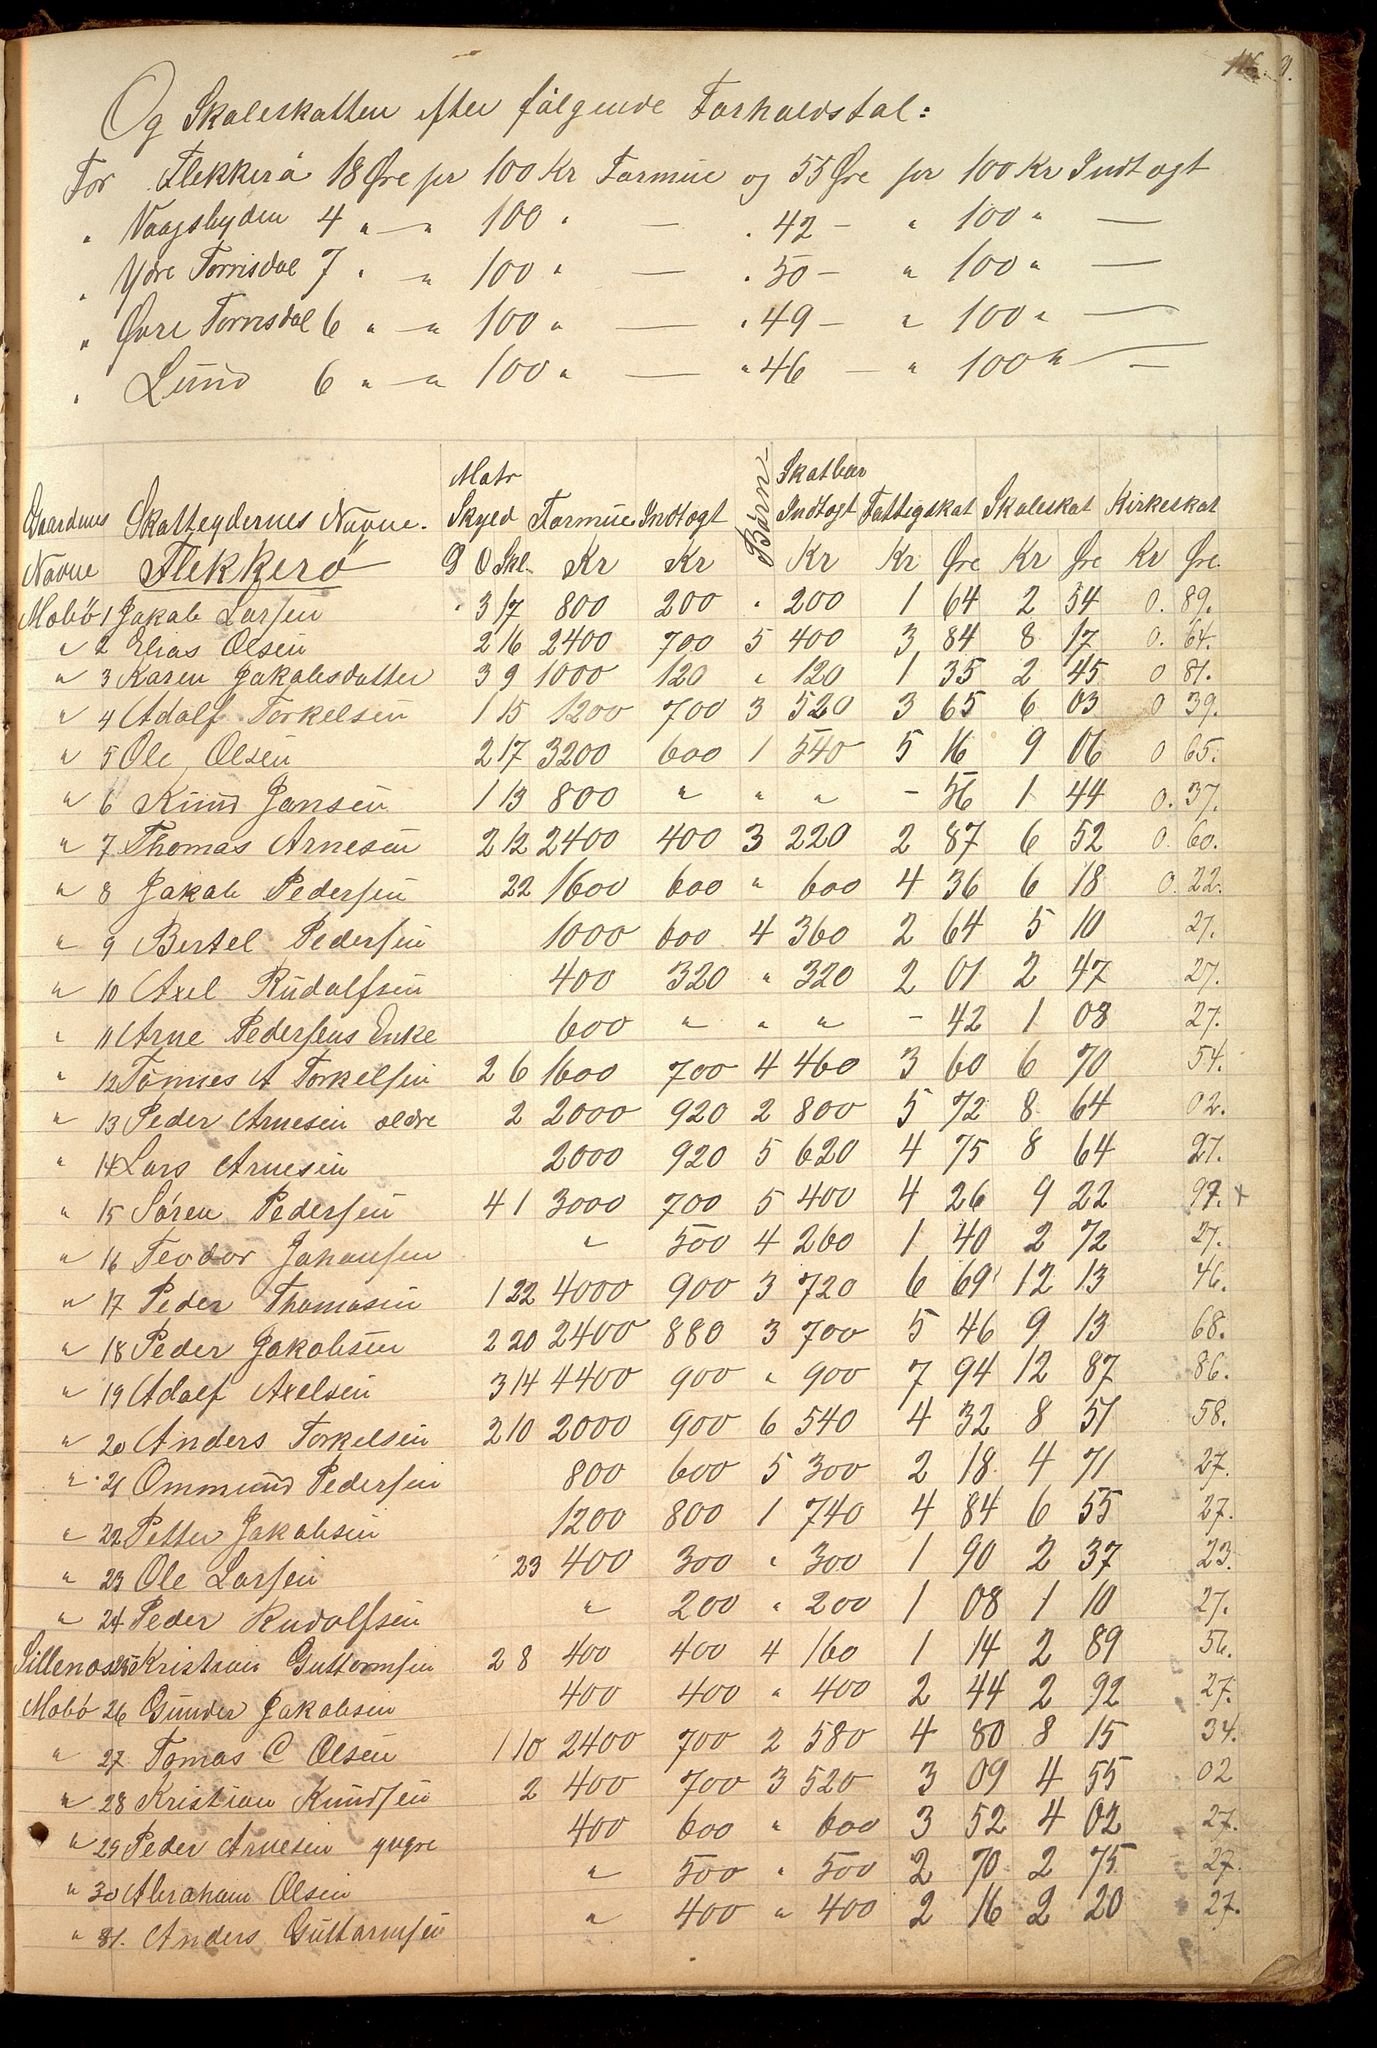 Og Skoleskatten efter følgende Forholdstal:
For Flekkerø 18 Øre pr 100 Kr Formue og 55 Øre pr 100 Kr Indtægt
" Vaagsbyden 4 " — " 100 " — " 42 — " 100 " —
" Ydre Torrisdal 7 " — " 100 " — " 50 — " 100 " —
" Øvre Torrisdal 6 " — " 100 " — " 49 — " 100 " —
" Lund 6 " — " 100 " — " 46 — " 100 " —
Gaardenes Navne Skatteydernes Navne. Matr Skyld Formue Indtægt Børn Skatbar Indtægt Fattigskat Skoleskat Kirkeskat
Flekkerø D O Skl. Kr Kr Kr Kr Øre Kr Øre Kr Øre
Mæbø 1 Jakob Larsen " 3 17 800 200 " 200 1 64 2 54 0. 89.
" 2 Elias Olsen 2 16 2400 700 5 400 3 84 8 17 0. 64.
" 3 Karen Jakobsdatter 3 9 1000 120 " 120 1 35 2 45 0 81.
" 4 Adolf Torkelsen 1 15 1200 700 3 520 3 65 6 03 0 39.
" 5 Ole Olsen 2 17 3200 600 1 540 5 16 9 06 0 65.
" 6 Knud Jansen 1 13 800 " " " - 56 1 44 0. 37.
" 7 Thomas Arnesen 2 12 2400 400 3 220 2 87 6 52 0. 60.
" 8 Jakob Pedersen 22 1600 600 " 600 4 36 6 18 0. 22.
" 9 Bertel Pedersen 1000 600 4 360 2 64 5 10 27.
" 10 Axel Rudolfsen 400 320 " 320 2 01 2 47 27.
" 11 Arne Pedersens Enke 600 " " " - 42 1 08 27.
" 12 Tønnes A Torkelsen 2 6 1600 700 4 460 3 60 6 70 54.
" 13 Peder Arnesen ældre 2 2000 920 2 800 5 72 8 64 02.
" 14 Lars Arnesen 2000 920 5 620 4 75 8 64 27.
" 15 Søren Pedersen 4 1 3000 700 5 400 4 26 9 22 97. +
" 16 Teodor Johansen " 500 4 260 1 40 2 72 27.
" 17 Peder Thomasen 1 22 4000 900 3 720 6 69 12 13 46.
" 18 Peder Jakobsen 2 20 2400 880 3 700 5 46 9 13 68.
" 19 Adolf Axelsen 3 14 4400 900 " 900 7 94 12 87 86.
" 20 Anders Torkelsen 2 10 2000 900 6 540 4 32 8 51 58.
" 21 Ommund Pedersen 800 600 5 300 2 18 4 71 27.
" 22 Petter Jakobsen 1200 800 1 740 4 84 6 55 27.
" 23 Ole Larsen 23 400 300 " 300 1 90 2 37 23.
" 24 Peder Rudolfsen " 200 " 200 1 08 1 10 27.
Lillenæs 25 Kristian Guttormsen 2 8 400 400 4 160 1 14 2 89 56.
Mæbø 26 Gunder Jakobsen 400 400 " 400 2 44 2 92 27.
" 27 Tomas C Olsen 1 10 2400 700 2 580 4 80 8 15 34.
" 28 Kristian Knudsen 2 400 700 3 520 3 09 4 55 02
" 29 Peder Arnesen yngre 400 600 " 600 3 52 4 02 27.
" 30 Abraham Olsen " 500 " 500 2 70 2 75 27.
" 31. Anders Guttormsen " 400 " 400 2 16 2 20 27.